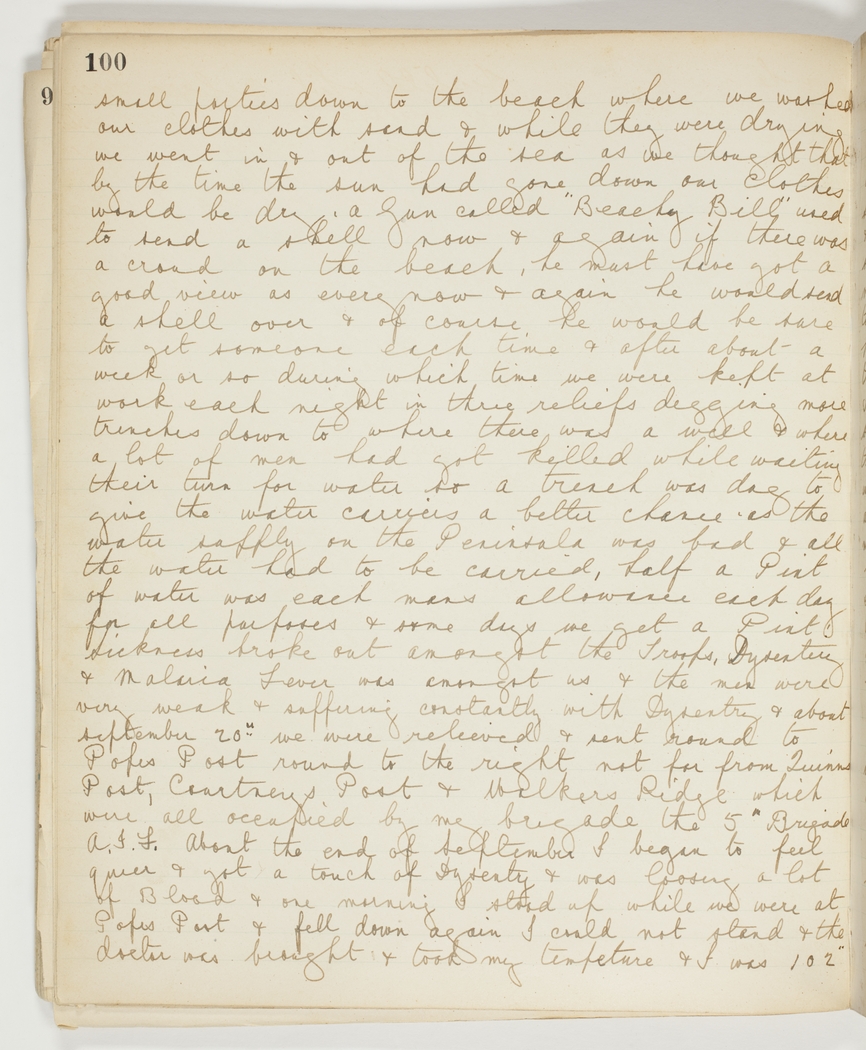 100
9
small parties down to the beach where we washed
our clothes with sand & while they were drying
we went in & out of the sea as we thought that
by the time the sun had gone down our clothes
would be dry. a Gun called "Beachy Bill" used
to send a shell now & again if there was
a croud on the beach, he must have got a
good view as every now & again he would send
a shell over & of course he would be sure
to get someone each time & after about a
week or so during which time we were kept at
work each night in three reliefs digging more
trenches down to where there was a well & where
a lot of men had got killed while waiting
their turn for water so a trench was dug to
give the water carriers a better chance as the
water supply on the Peninsula was bad & all
the water had to be carried, half a Pint
of water was each mans allowance each day
for all purposes & some days we get a Pint
Sickness broke out amongst the Troops, Dysentery
& Malaria Fever was amongst us & the men were
very weak & suffering constantly with Dysentry & about
september 20" we were relieved & sent round to
Popes Post round to the right not far from Quinns
Post, Courtneys Post & Walkers Ridge which
were all occupied by my brigade the 5" Brigade
A.I.F. About the end of September I began to feel
queer & got a touch of Dysentry & was loosing a lot
of Blood & one morning I stood up while we were at
Popes Post & fell down again I could not stand & the
doctor was brought & took my tempeture & I was 102"